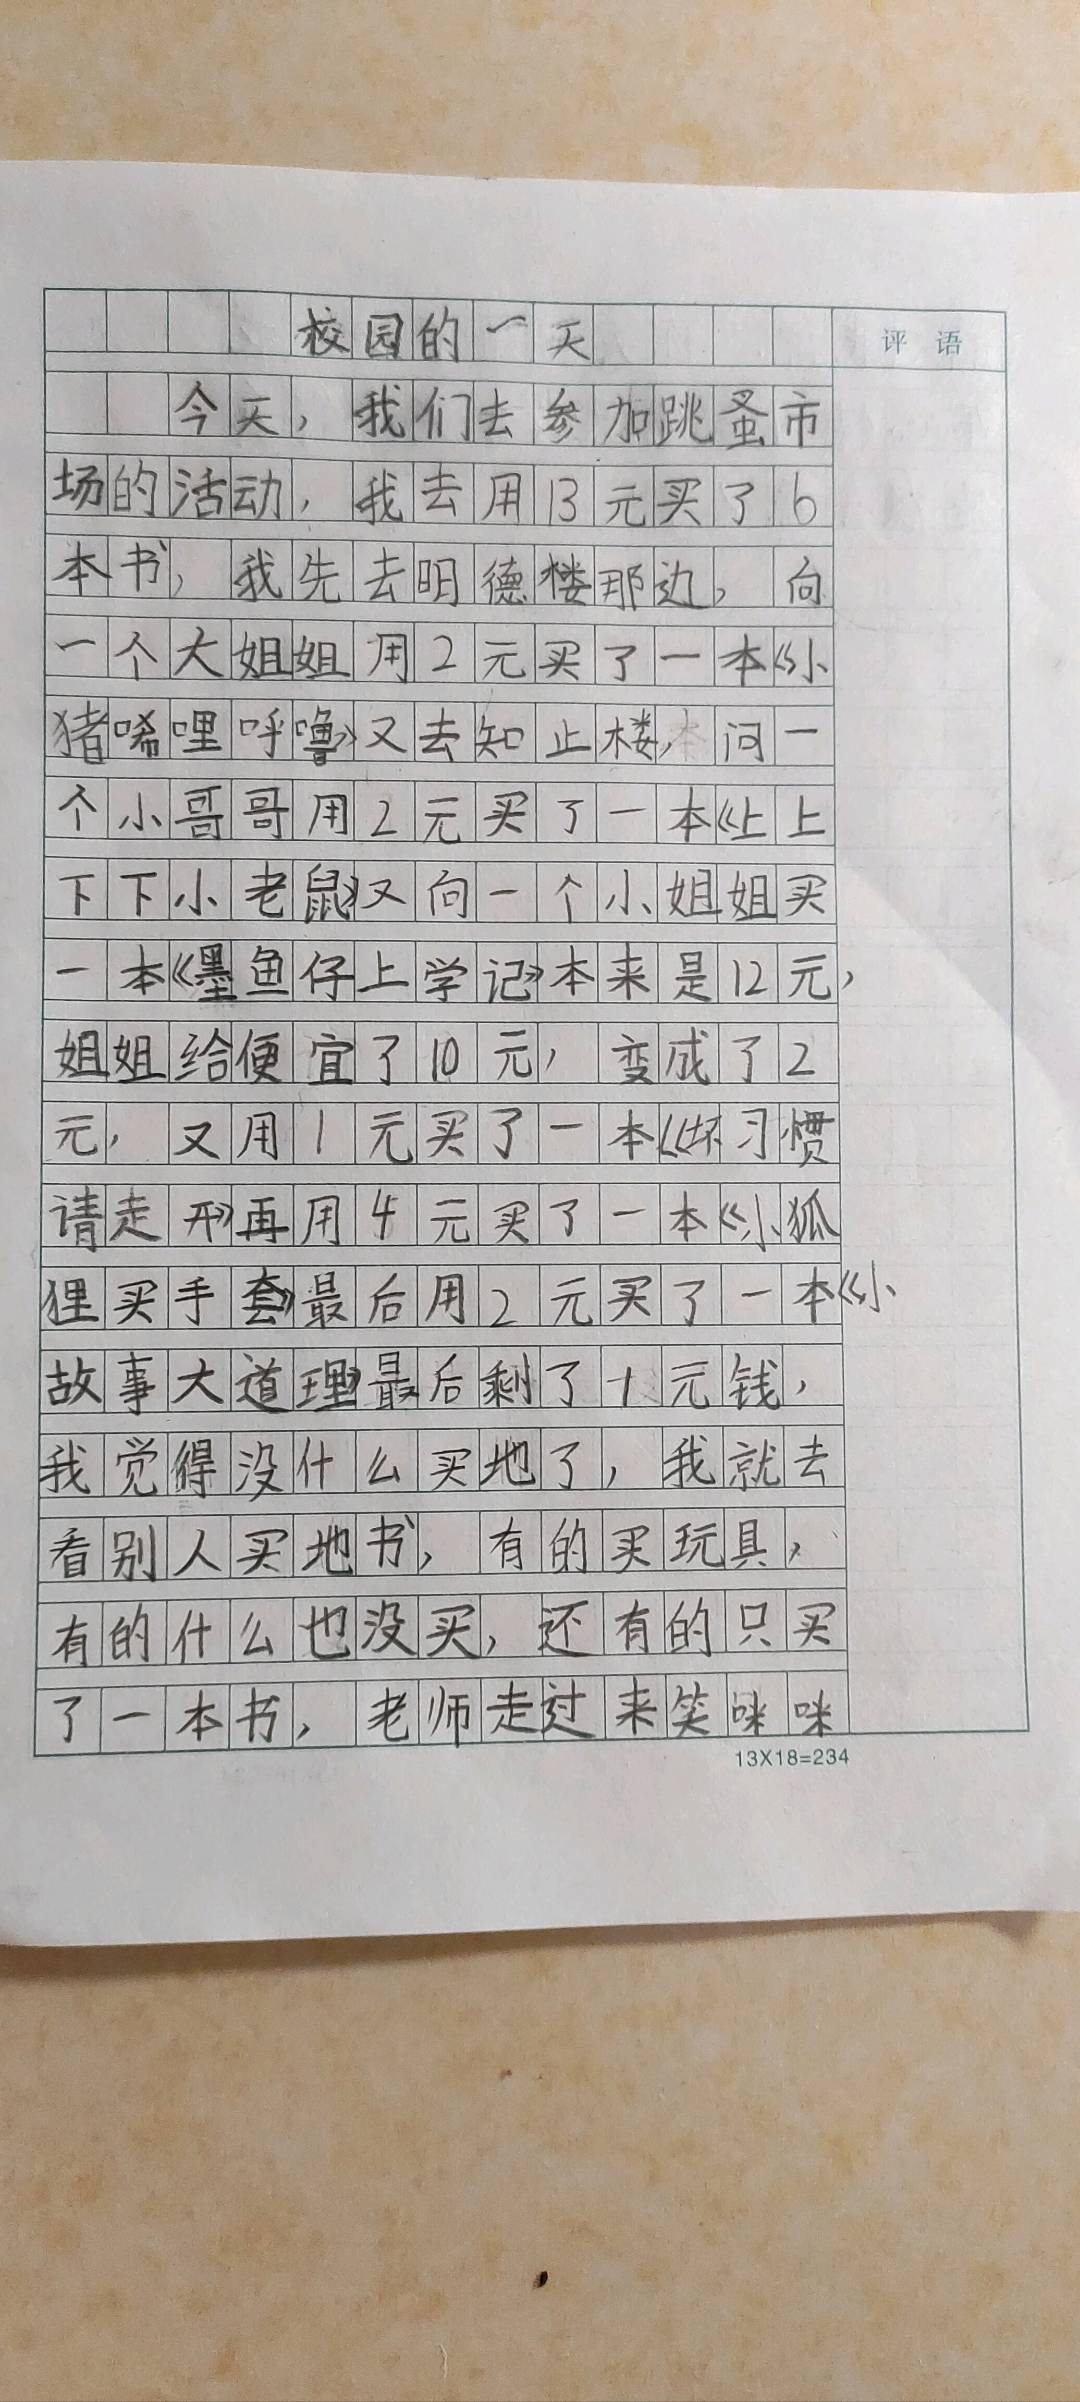 校园的一天
评语
今天，我们去参加跳蚤市
场的活动，我去用13元买了6
本书，我先去明德楼那边，向
一个大姐姐用2元买了一本《小
猪唏哩呼噜》又去知止楼，问一
个小哥哥用2元买了一本《上上
下下小老鼠》又向一个小姐姐买
一本《墨鱼仔上学记》本来是12元，
姐姐给便宜了10元，变成了2
元，又用1元买了一本《坏习惯
请走开》再用4元买了一本《小狐
狸买手套》最后用2元买了一本《小
故事大道理》最后剩了1元钱，
我觉得没什么买地了，我就去
看别人买地书，有的买玩具，
有的什么也没买，还有的只买
了一本书，老师走过来笑咪咪
13X18=234